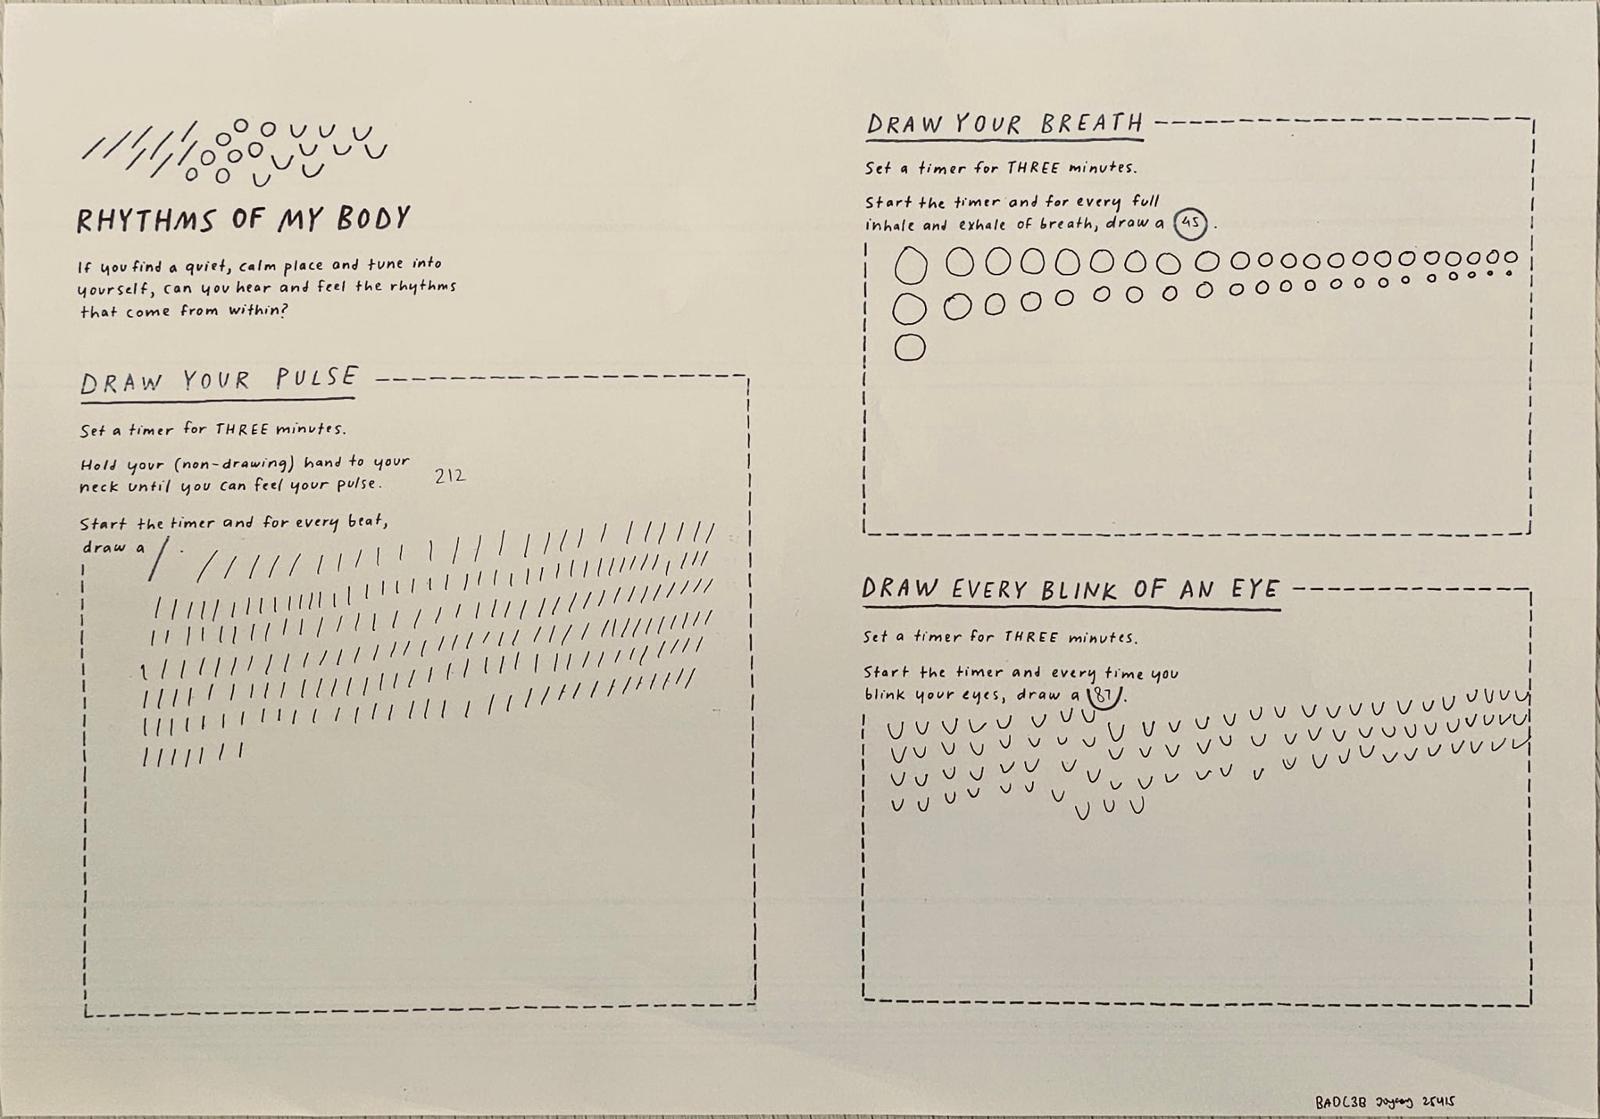 RHYTHMS OF MY BODY
If you find a quiet, calm place and tune into
yourself, can you hear and feel the rhythms
that come from within?
DRAW YOUR PULSE
Set a timer for THREE minutes.
Hold your (non-drawing) hand to your
neck until you can feel your pulse.
212
Start the timer and for every beat,
draw a / .
DRAW YOUR BREATH
Set a timer for THREE minutes.
Start the timer and for every full
inhale and exhale of breath, draw a 45 .
DRAW EVERY BLINK OF AN EYE
Set a timer for THREE minutes.
Start the timer and every time you
blink your eyes, draw a 87 .
BADC3B 25415